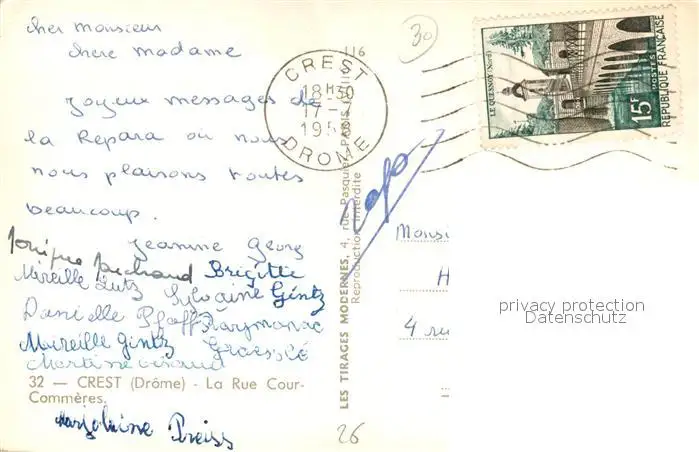 cher monsieur
chere madame
joyeux messages de
la Repara où nous
nous plaisons toutes
beaucoup.
Jeannine Georg
Brigitte
Mireille Lutz Sylvaine Gintz
Danielle Pfaff
Mureille Gintz
Martine
32 — CREST (Drôme) - La Rue Cour-
Commères.
Marjolaine Preiss
LES TIRAGES MODERNES, 4, rue Pasquier, PARIS
Reproduction interdite
116
30
CREST
18H30
17-7
195
DROME
LE QUESNOY (Nord)
15F
POSTES
REPUBLIQUE FRANÇAISE
Monsi
H
4 ru
privacy protection
Datenschutz
26